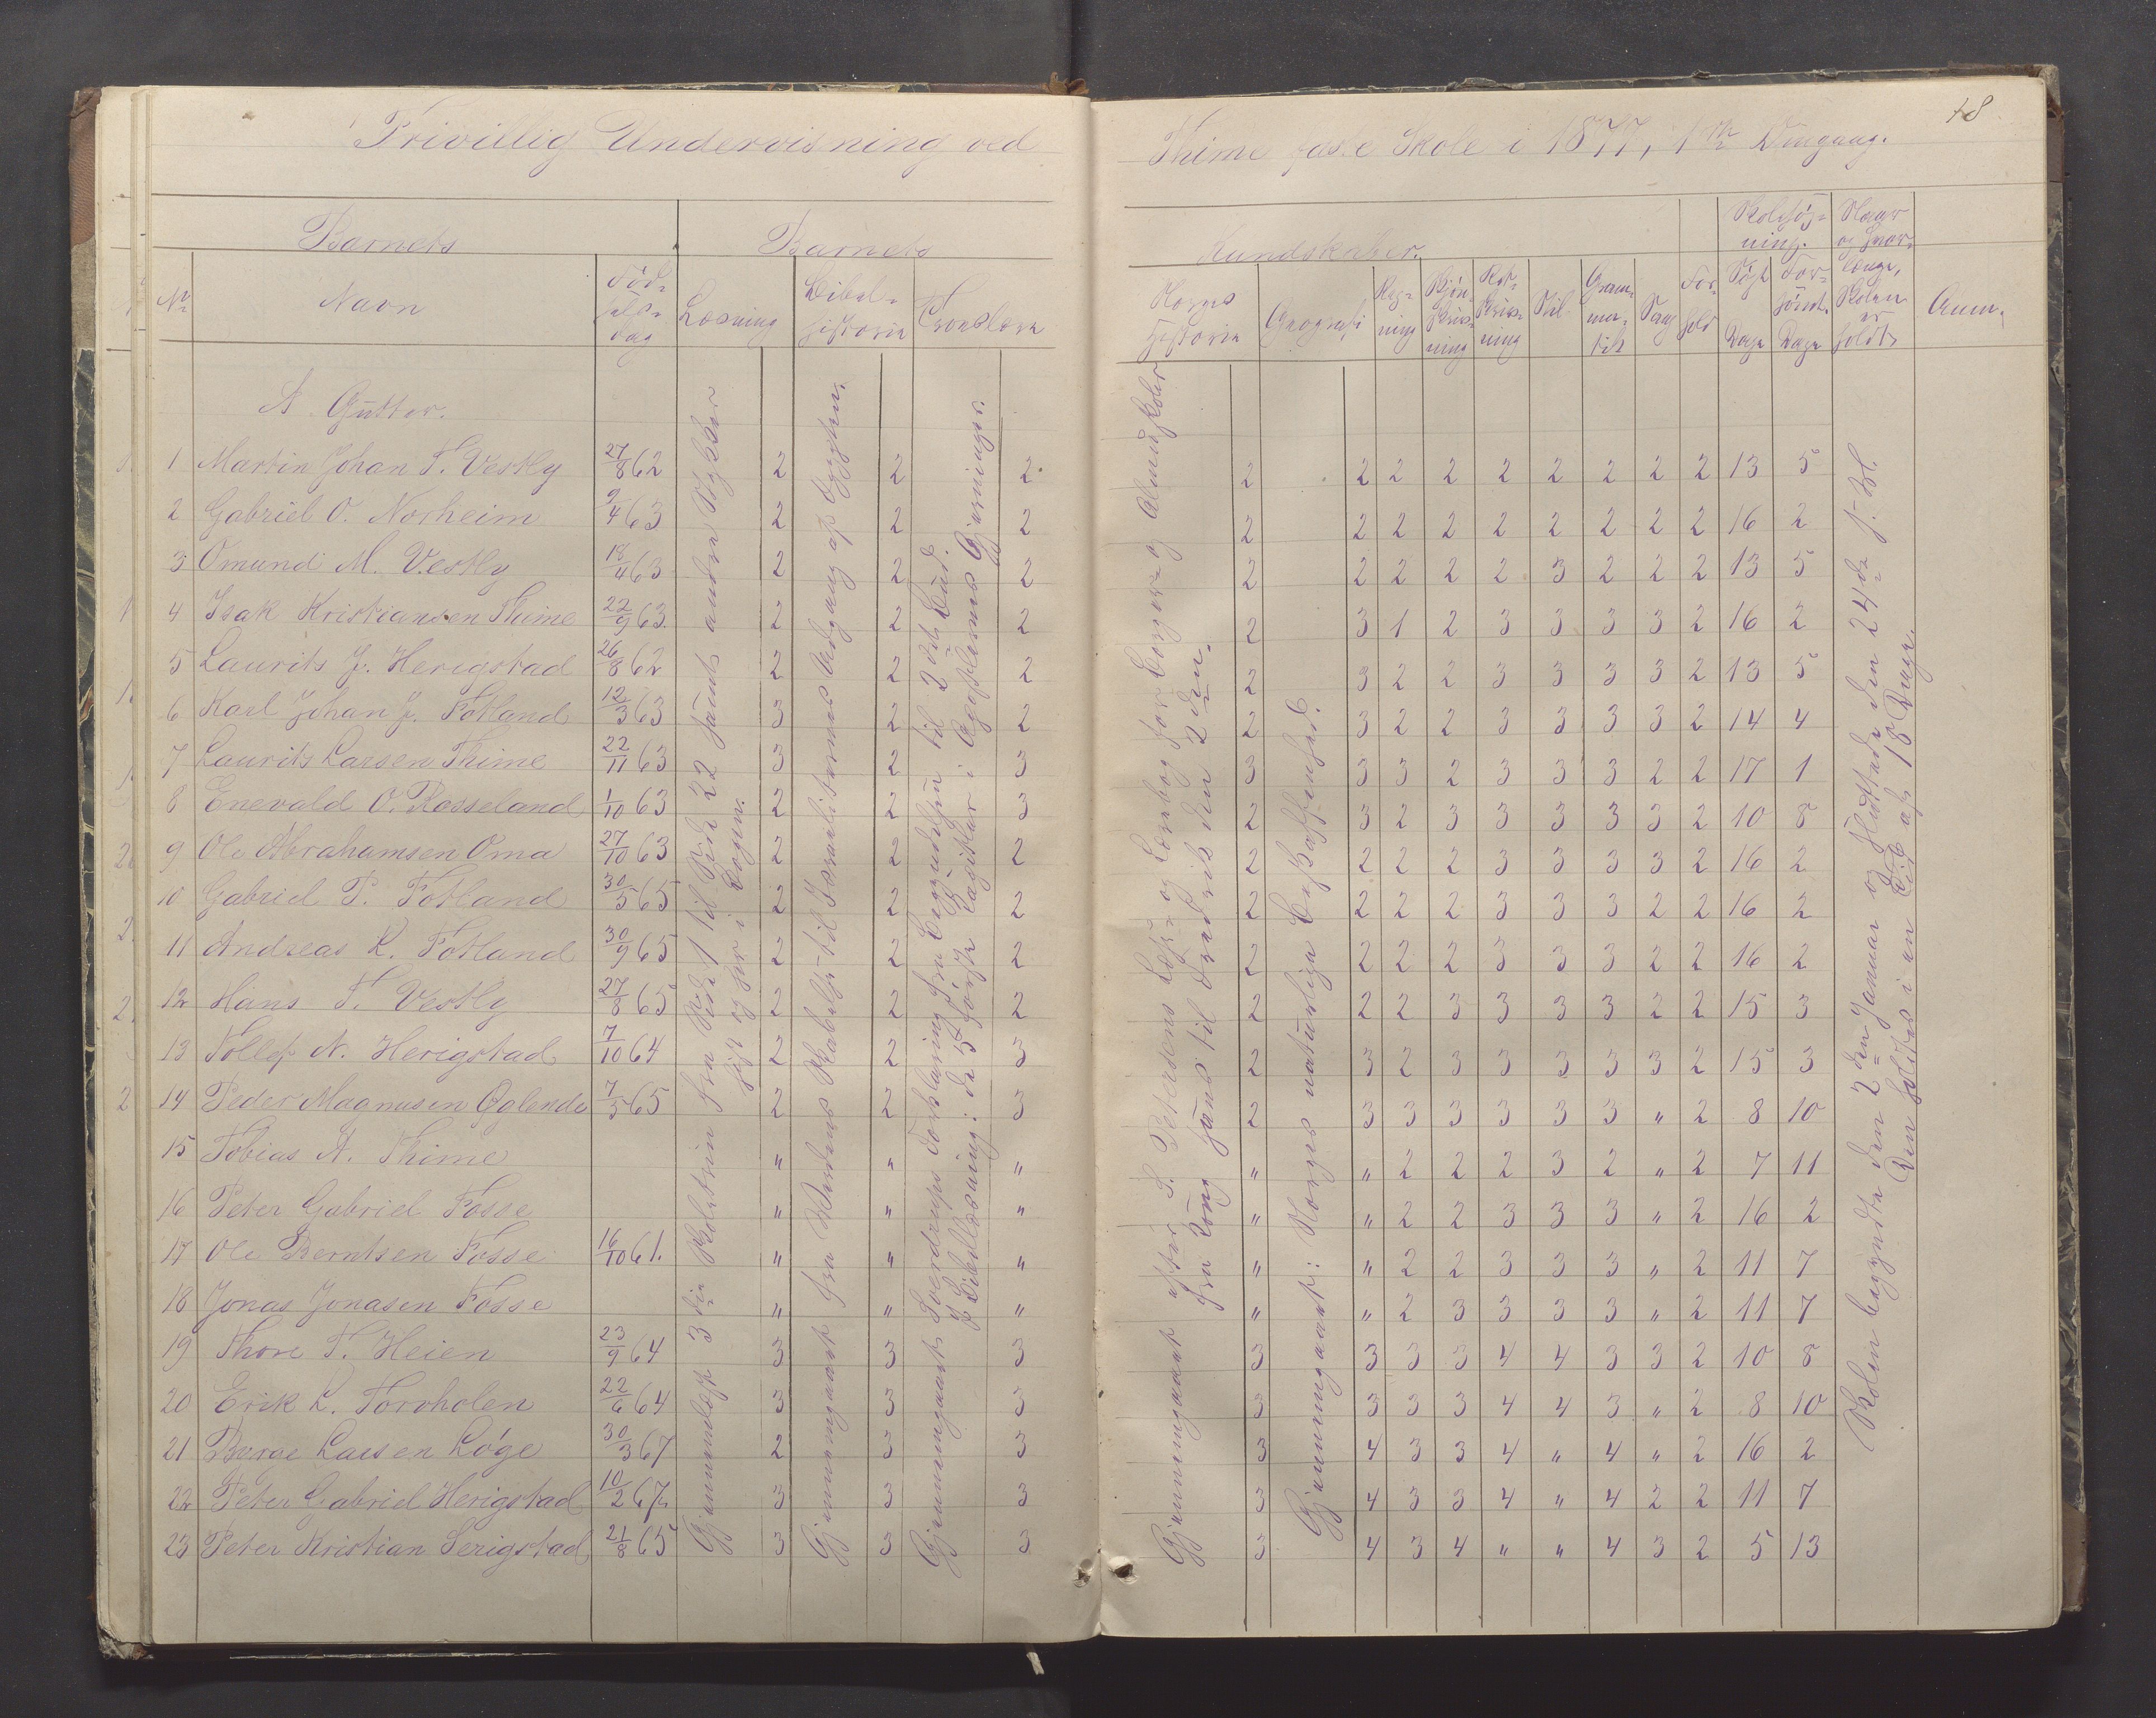 48
Frivillig Undervisning ved Thime faste Skole i 1877, 1ste Omgang.
Barnets
Barnets Kundskaber.
Skolesøg-
ning.
Naar
og hvor-
længe
Skolen
er
holdt
Anm.
No
Navn
Fød-
sels-
dag
Læsning
Bibel-
historie
Troeslære
Norges
Historie
Geografi
Reg-
ning
Skjøn-
skriv-
ning
Ret-
skriv-
ning
Stil
Gram-
ma-
tik
Sang
For-
hold
Søgt
Dage
For-
sømt.
Dage
A Gutter.
1 Martin Johan T. Vestly 27/8 62 2 2 2 2 2 2 2 2 2 2 2 2 13 5
2 Gabriel O. Norheim 9/4 63 2 2 2 2 2 2 2 2 2 2 2 2 16 2
3 Omund M. Vestly 18/4 63 2 2 2 2 2 2 2 2 3 2 2 2 13 5
4 Isak Kristiansen Thime 22/9 63 2 2 2 2 3 1 2 3 3 3 3 2 16 2
5 Laurits J. Herigstad 26/8 62 2 2 2 2 3 2 2 3 3 3 3 2 13 5
6 Karl Johan J. Fotland 12/3 63 3 2 2 2 3 2 2 3 3 3 3 2 14 4
7 Laurits Larsen Thime 22/11 63 3 2 3 3 3 3 2 3 3 3 2 2 17 1
8 Enevald O. Rosseland 1/10 63 2 2 3 2 3 2 3 3 3 3 3 2 10 8
9 Ole Abrahamsen Oma 27/10 63 2 2 2 2 2 2 2 3 3 3 3 2 16 2
10 Gabriel P. Fotland 30/5 65 2 2 2 2 2 2 2 3 3 3 2 2 16 2
11 Andreas K. Fotland 30/9 65 2 2 2 2 2 2 2 3 3 3 2 2 16 2
12 Hans T. Vestly 27/8 65 2 2 2 2 2 2 3 3 3 3 2 2 15 3
13 Tollef N. Herigstad 7/10 64 2 2 3 2 3 2 3 3 3 3 3 2 15 3
14 Peder Magnusen Øglende 7/5 65 2 2 3 2 3 3 3 3 3 3 " 2 8 10
15 Tobias A. Thime " " " " " 2 2 2 3 2 " 2 7 11
16 Peter Gabriel Fosse " " " " " 2 2 3 3 3 " 2 16 2
17 Ole Berntsen Fosse 16/10 61. " " " " " 2 2 3 3 3 " 2 11 7
18 Jonas Jonasen Fosse " " " " " 2 3 3 3 3 " 2 11 7
19 Thore T. Heien 23/9 64 3 3 3 3 3 3 3 4 4 3 3 2 10 8
20 Erik L. Torvholen 22/6 64 3 3 3 3 3 3 3 4 4 3 " 2 8 10
21 Børge Larsen Løge 30/3 67 2 3 3 3 4 3 3 4 " 4 " 2 16 2
22 Peter Gabriel Herigstad 10/2 67 3 3 3 3 4 3 3 4 " 4 2 2 11 7
23 Peter Kristian Serigstad 21/8 65 3 3 3 3 4 3 4 " " 4 3 2 5 13
Gjennemlæst 3die Skoletrin fra Side 1 til Side 22 samt andre Stykker
hist og her i Bogen.
Gjennemgaaet fra Verdens Skabelse til Israeliternes Udgang af Egypten.
Gjennemgaaet Sverdrups Forklaring fra Begyndelsen til 2det Bud.
I Bibellæsning: de 5 første Kapitler i Apostlernes Gjerninger.
Gjennemgaaet efter S. Petersens Læse- og Lærebog for Borger- og Almueskoler
fra Kong Hans til Fredrik den 2den.
Gjennemgaaet: Norges naturlige Beskaffenhed.
Skolen begyndte den 2den Januar og sluttede den 24de f. M.
Den holdtes i en Tid af 18 Dage.